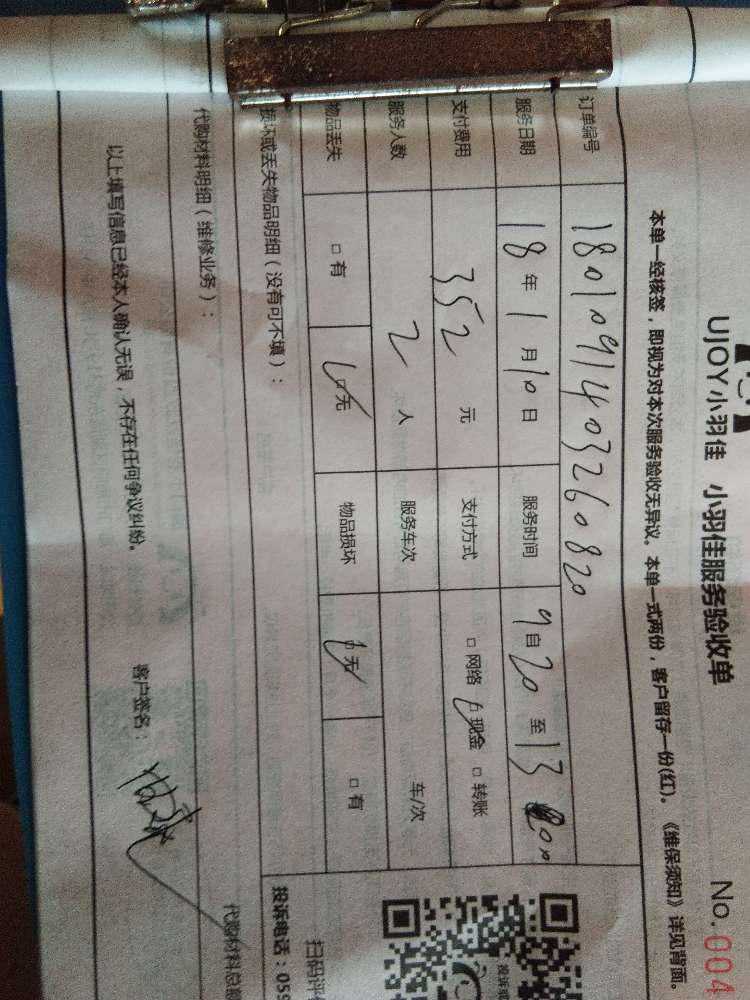 UJOY小羽佳 小羽佳服务验收单 No.004
本单一经核签，即视为对本次服务验收无异议。本单一式两份，客户留存一份(红)。《维保须知》详见背面。
订单编号 180109140326082 0
服务日期 18年1月10日 服务时间 9自20至13
支付费用 352元 支付方式 □网络 □现金 □转账
服务人数 2人 服务车次 车/次
物品丢失 □有 □无 物品损坏 □无 □有
损坏或丢失物品明细（没有可不填）：
投诉电话：059
扫码评
代购材料明细（维修业务）：
代购材料总
以上填写信息已经本人确认无误，不存在任何争议纠纷。 客户签名：